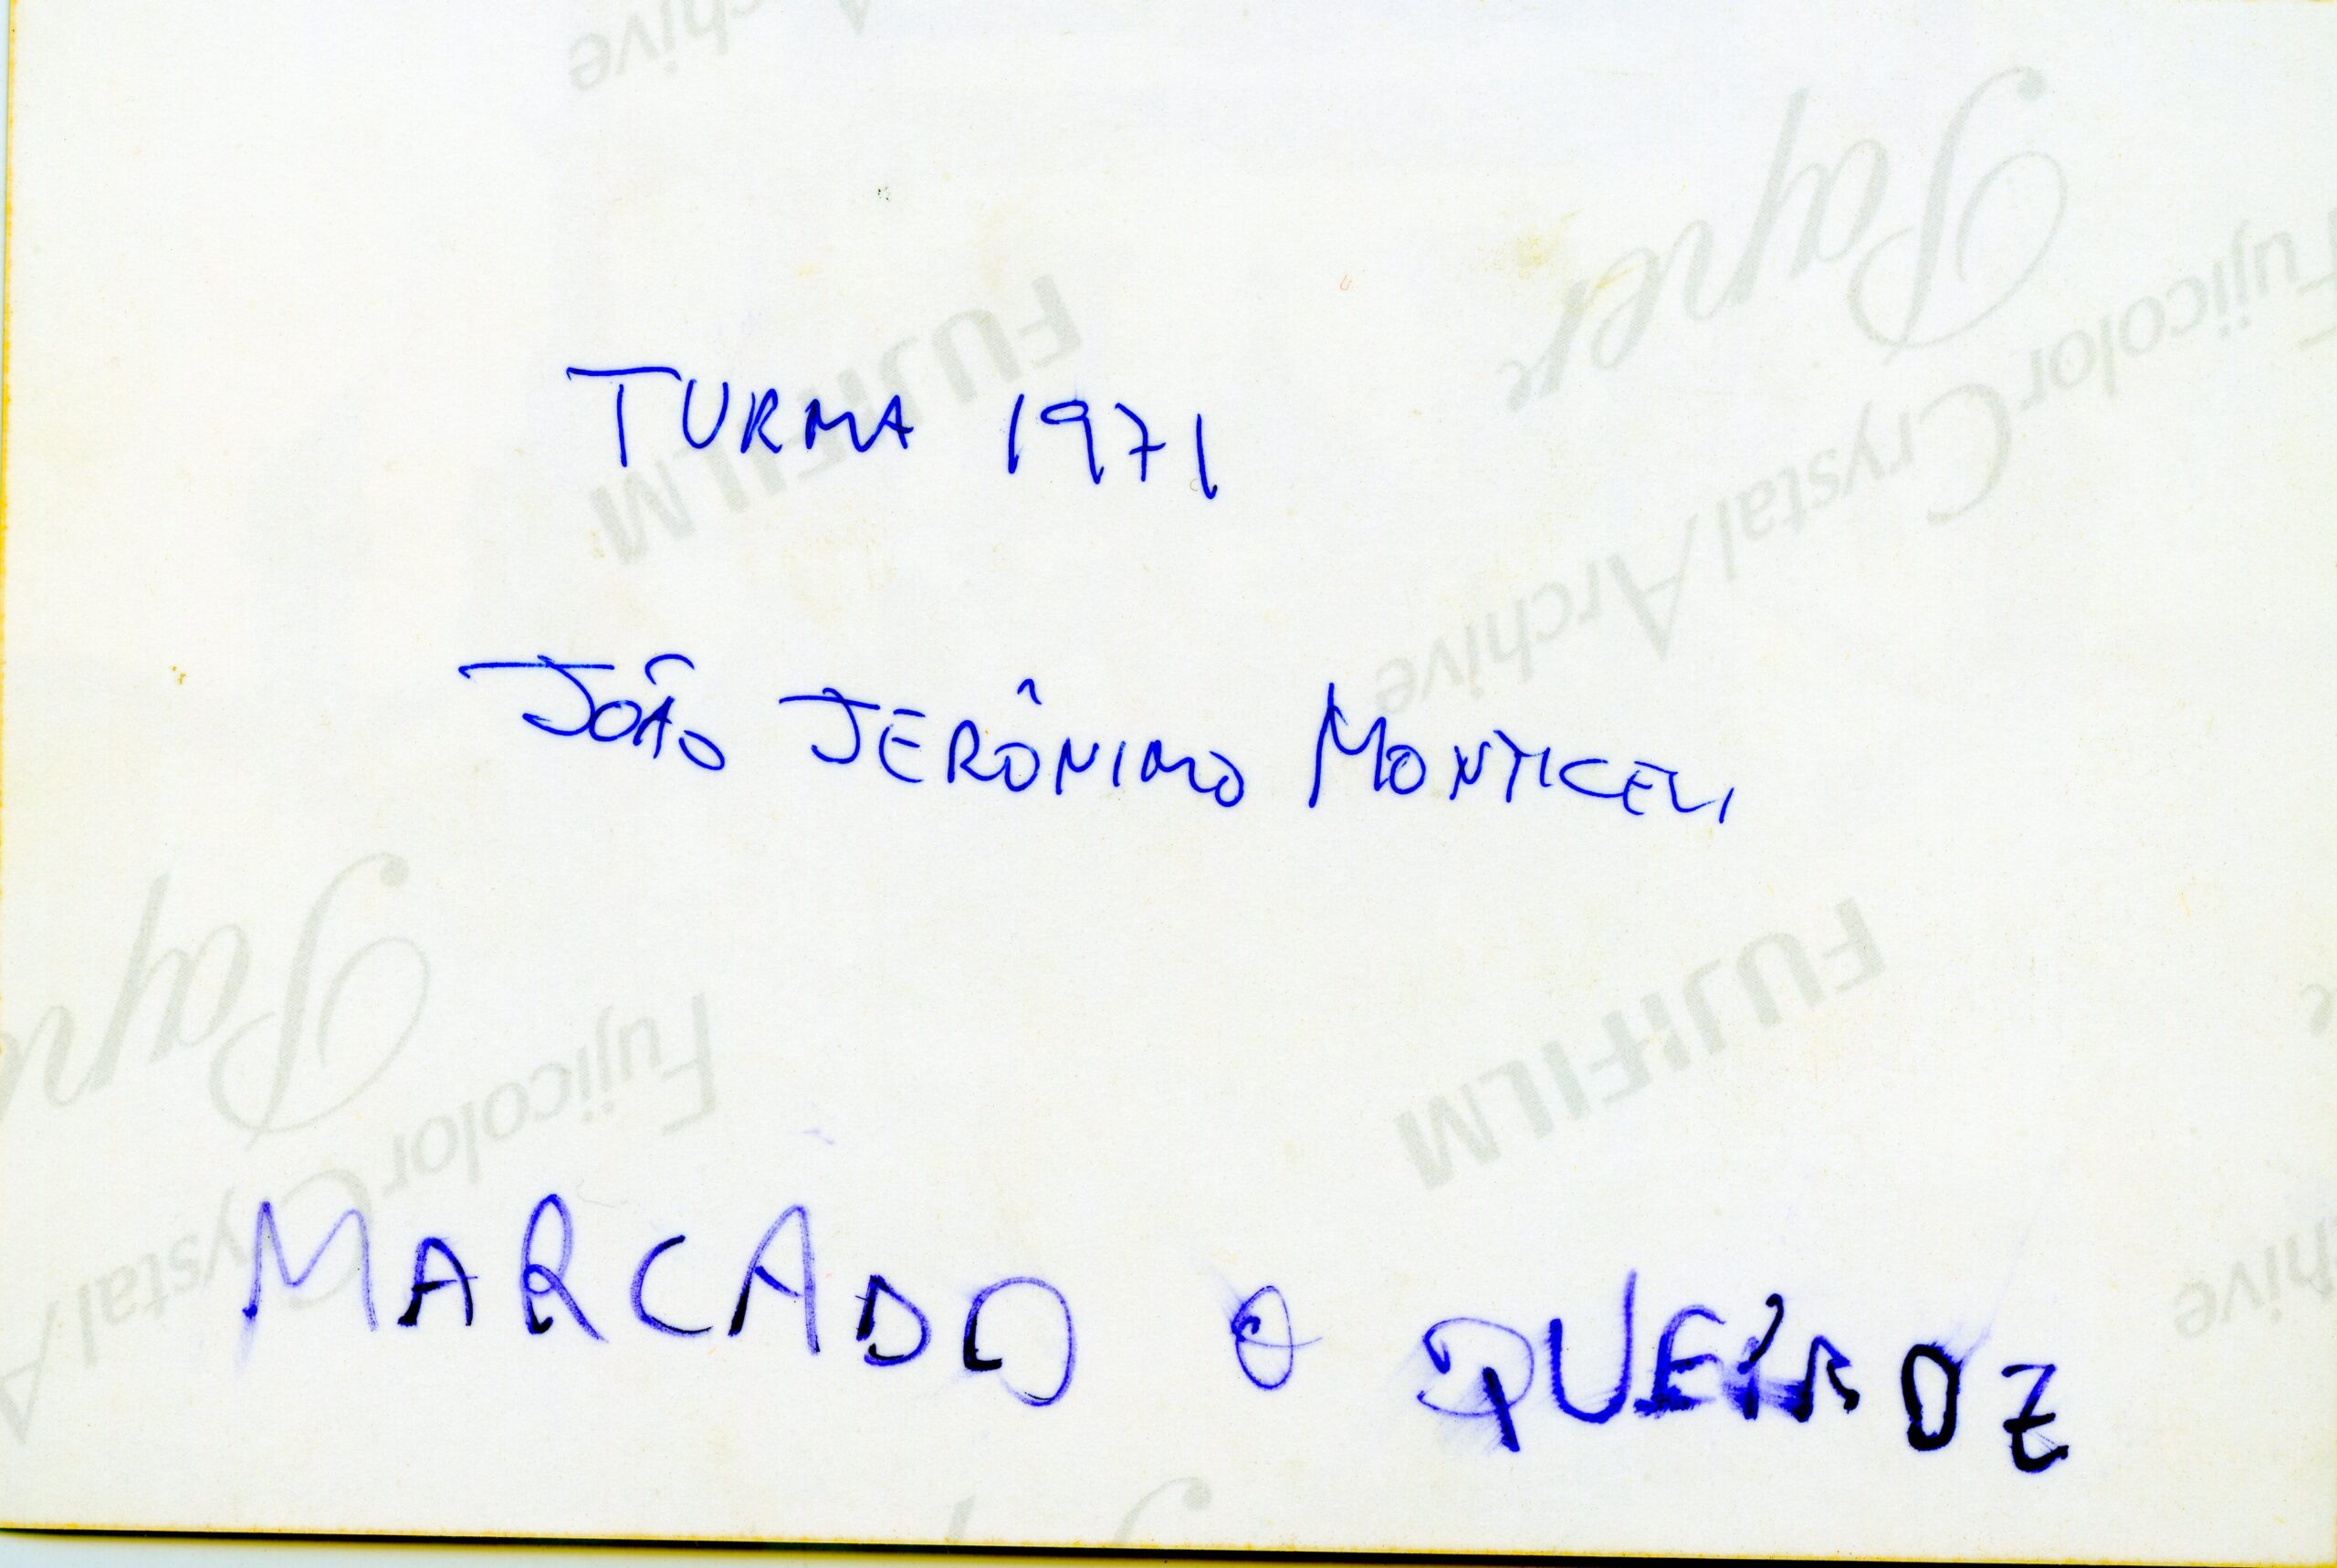 TURMA 1971
JOÃO JERÔNIMO MONTICELI
MARCADO O QUEIROZ
FUJIFILM
Fujicolor Crystal Archive
Paper
FUJIFILM
Fujicolor Crystal A